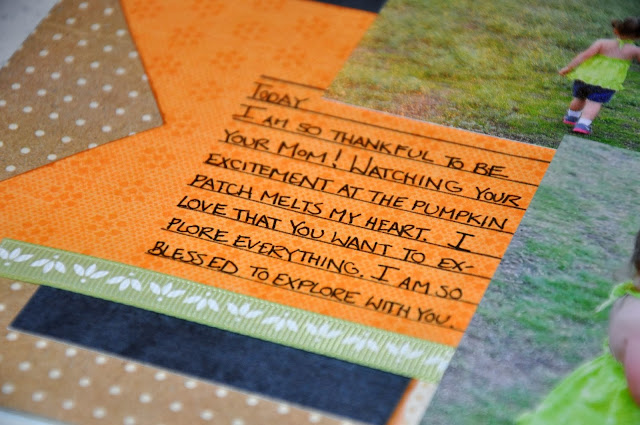 TODAY
I AM SO THANKFUL TO BE
YOUR MOM! WATCHING YOUR
EXCITEMENT AT THE PUMPKIN
PATCH MELTS MY HEART. I
LOVE THAT YOU WANT TO EX-
PLORE EVERYTHING. I AM SO
BLESSED TO EXPLORE WITH YOU.